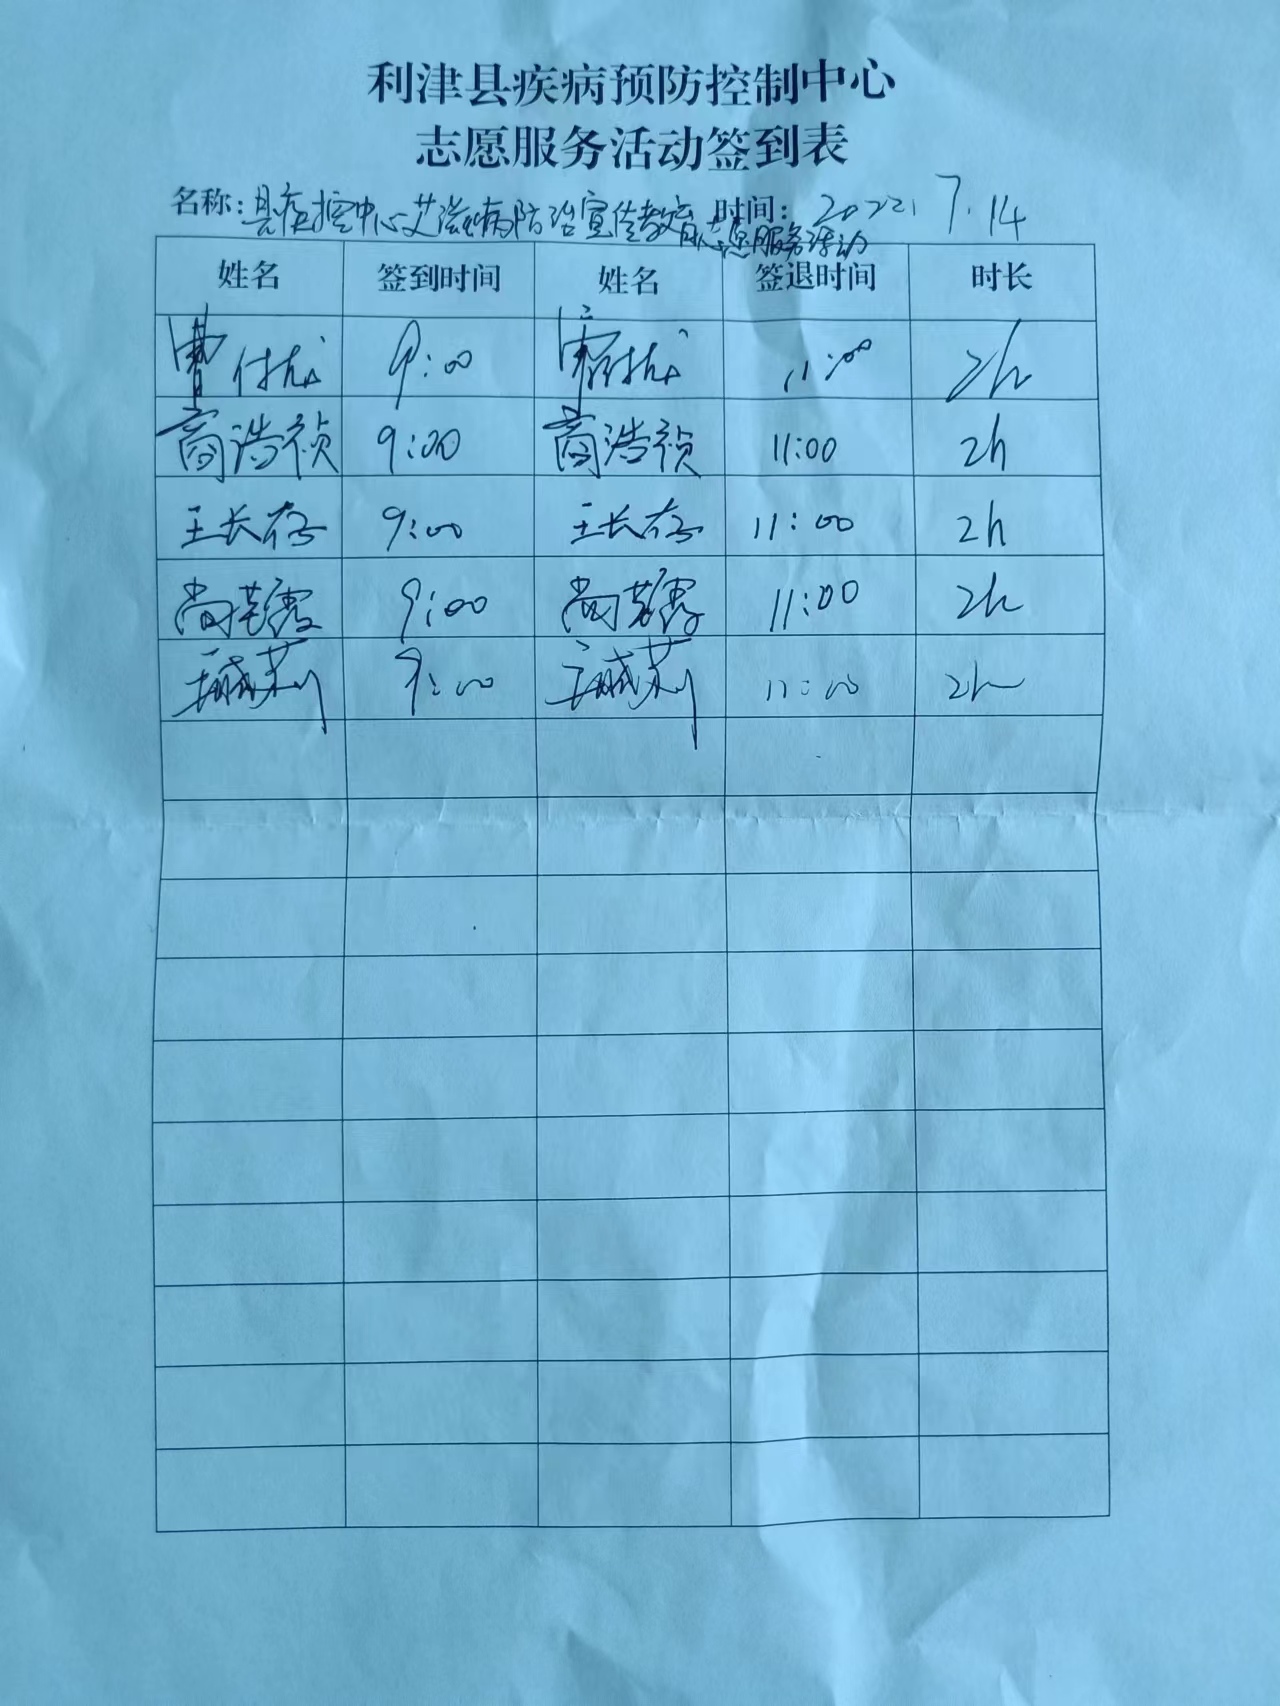 利津县疾病预防控制中心
志愿服务活动签到表
名称：县疾控中心艾滋病防治宣传教育志愿服务活动 时间：2022.7.14
姓名 签到时间 姓名 签退时间 时长
曹 9:00 11:00 2h
商浩祯 9:00 商浩祯 11:00 2h
王长存 9:00 王长存 11:00 2h
尚 9:00 尚 11:00 2h
9:00 11:00 2h